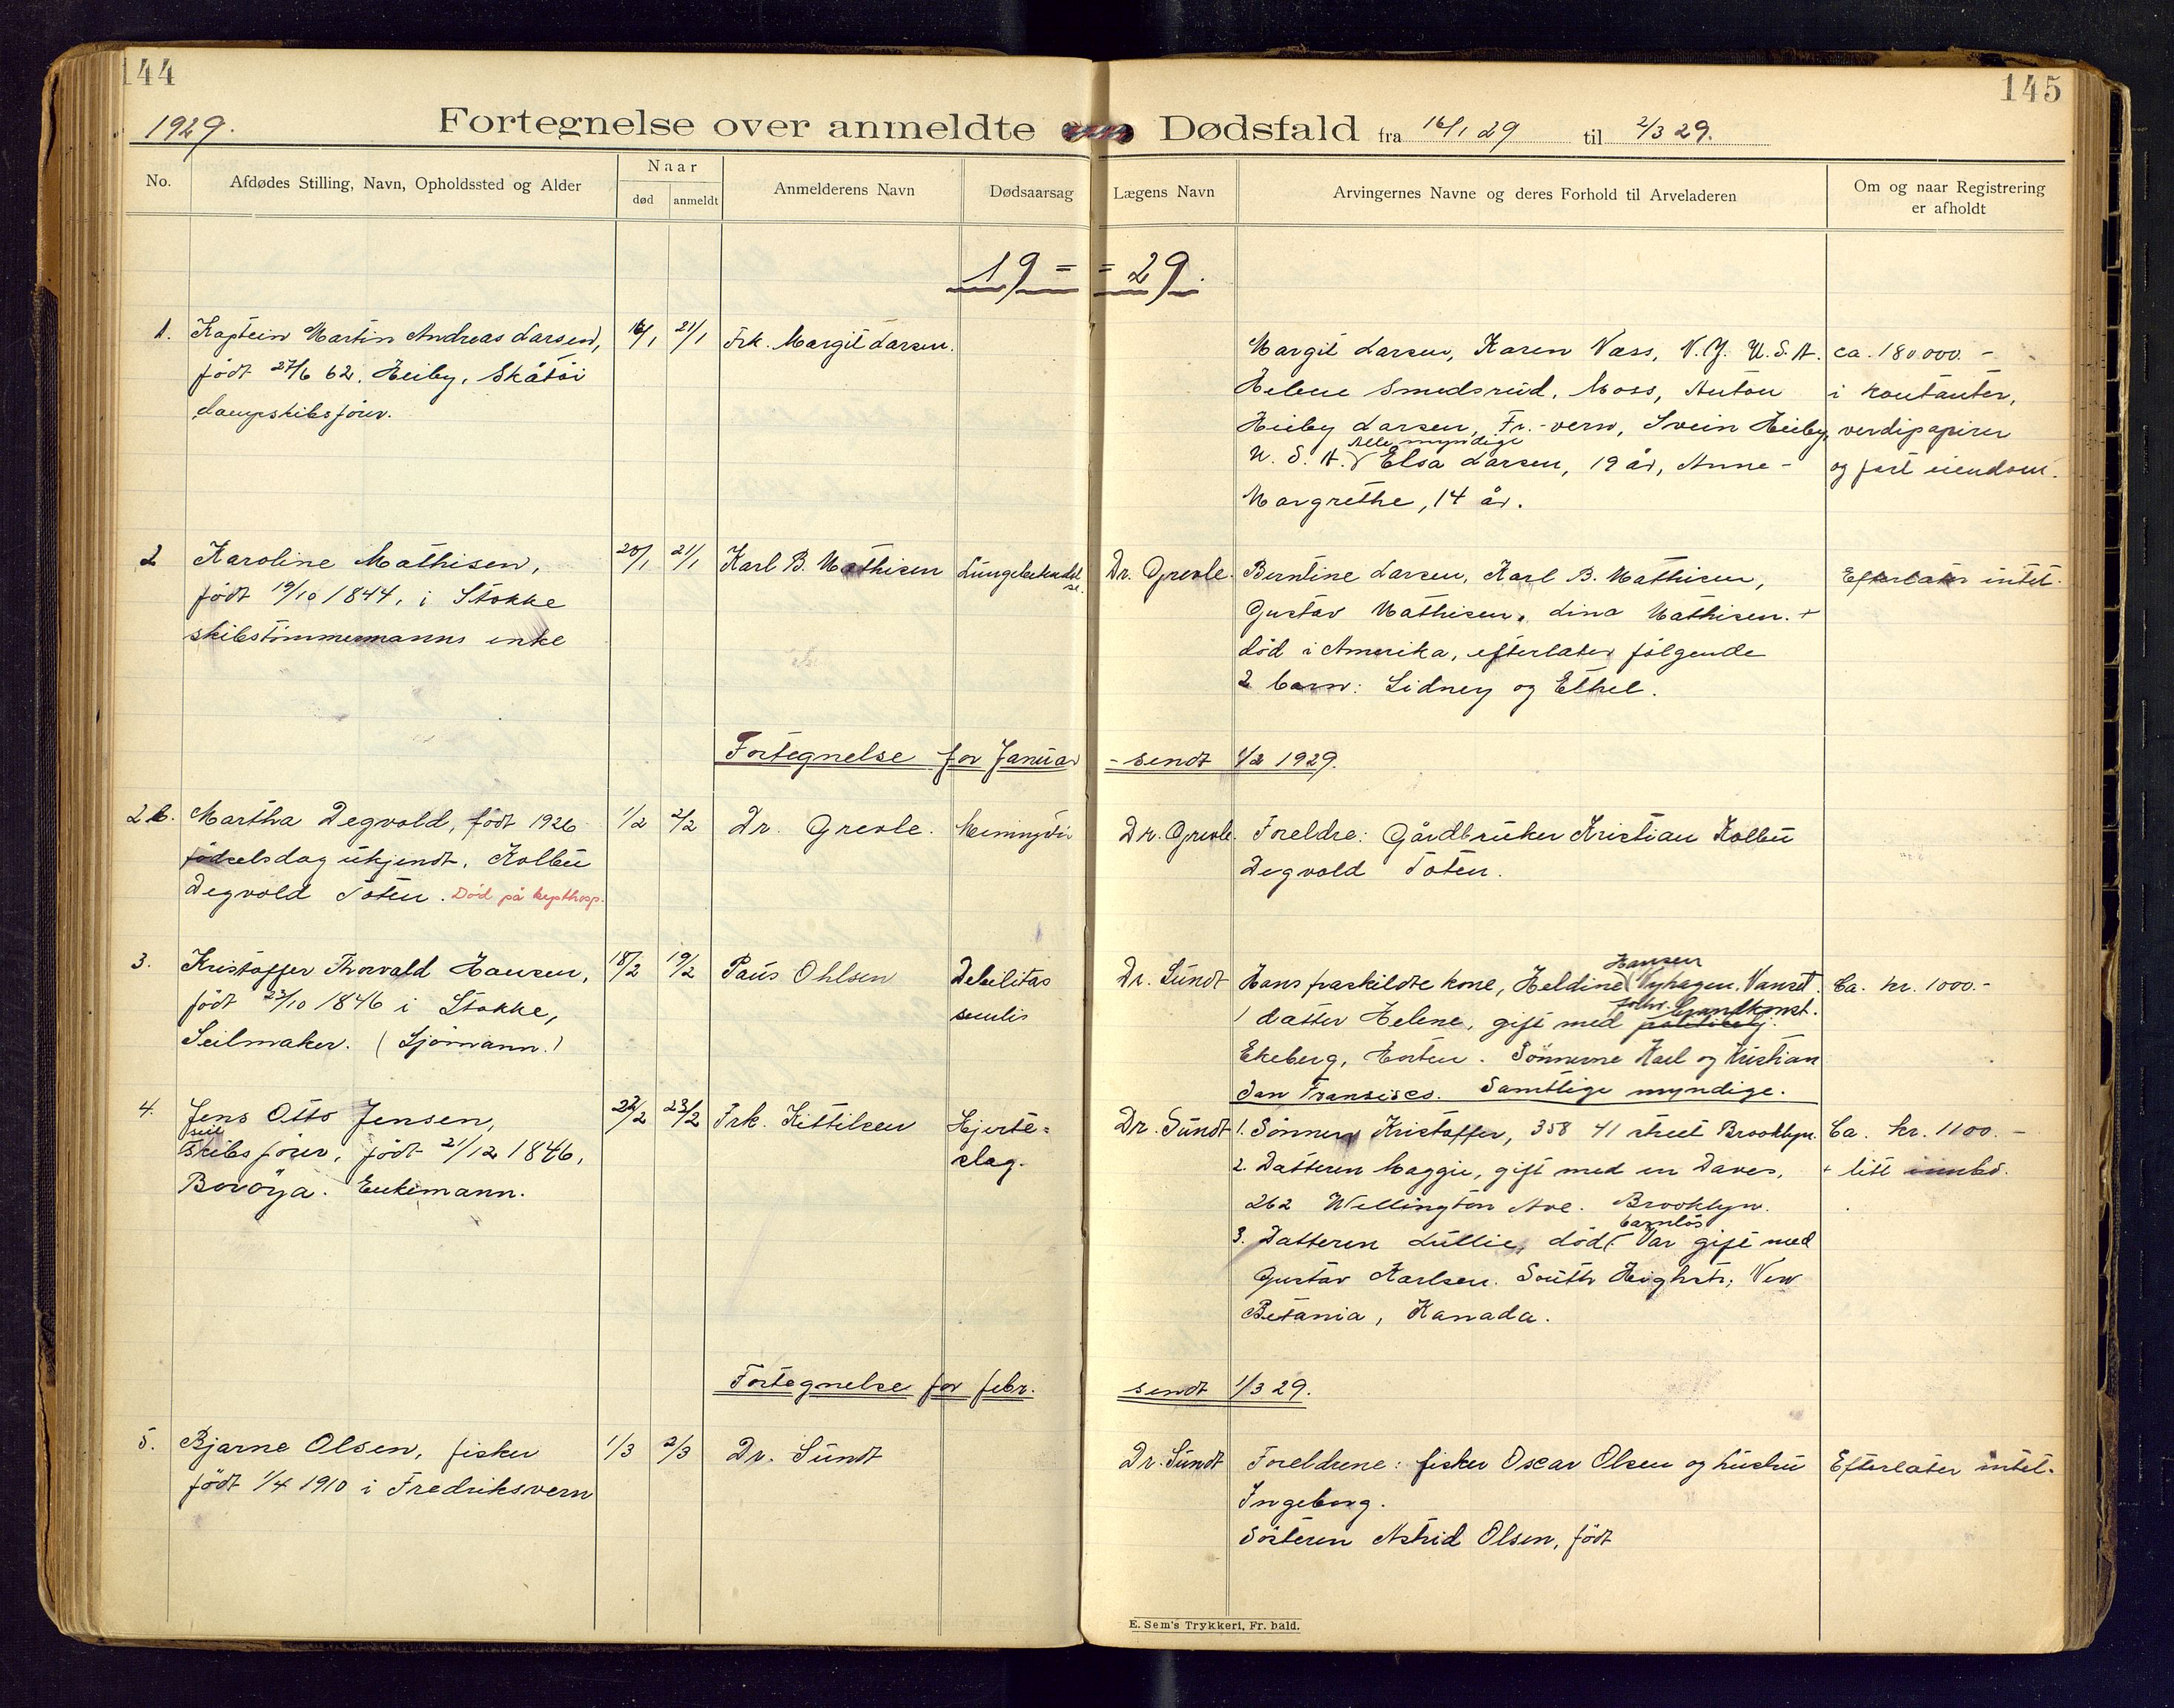 144
145
1929.
Fortegnelse over anmeldte Dødsfald fra 16/1 29 til 2/3 29.
No.
Afdødes Stilling, Navn, Opholdssted og Alder
Naar
død
anmeldt
Anmelderens Navn
Dødsaarsag
Lægens Navn
Arvingernes Navne og deres Forhold til Arveladeren
Om og naar Registrering
er afholdt
19 = = 29.
1. Kaptein Martin Andreas Larsen,
født 27/6 62. Heiby, Skåtøi
dampskibsfører.
16/1 21/1 Frk. Margit Larsen.
Margit Larsen, Karen Næss, N.Y. U.S.A.
Helene Smedsrud, Moss, Anton
Heiby Larsen, Fr.-vern, Svein Heiby,
Alle myndige
U.S.A. Elsa Larsen, 19 år, Anne-
Margrethe, 14 år.
ca. 180000.-
i kontanter,
verdipapirer
og fast eiendom.
2 Karoline Mathisen,
født 19/10 1844, i Stokke
skibstømmermanns enke
20/1 21/1 Karl B. Mathisen Lungebetendel
se.
Dr. Grevle.
Berntine Larsen, Karl B. Mathisen,
Gustav Mathisen, Lina Mathisen. +
død i Amerika, efterlater følgende
2 barn: Sidney og Ethel.
Efterlater intet.
Fortegnelse for Januar - sendt 1/2 1929.
2b. Martha Degvold, født 1926
fødselsdag ukjendt, Kolbu
Degvold Toten. Død på kysthosp.
1/2 2/2 Dr. Grevle.
Dr. Grevle.
Foreldre: Gårdbruker Kristian Kolbu
Degvold Toten.
3. Kristoffer Thorvald Hansen,
født 23/10 1846 i Stokke,
Seilmaker. (Sjømann.)
18/2 19/2 Paus Ohlsen Debilitas
senilis
Dr. Sundt
Hansen
Hans fraskildte kone, Heldine Nyhagen, Vanset.
1 datter Helene, gift med politibetj.
Ekeberg, Horten. Sønnerne Karl og Kristian
San Fransisco. Samtlige myndige.
Ca. kr. 1000.-
4. Jens Otto Jensen,
seil
Skibsfører, født 21/12 1846,
Borøya. Enkemann.
22/2 23/2 Frk. Kittilsen Hjerte=
slag.
Dr. Sundt
1. Sønnen Kristoffer, 358 41 street Brooklyn.
2. Datteren Maggie, gift med en Daves,
262 Wellington Ave. Brooklyn.
barnløs
3. Datteren Lullie, død. Var gift med
Gustav Karlsen. South Highstr; New
Betania, Kanada.
Ca. kr. 1100.-
+ litt innbo.
Fortegnelse for febr. sendt 1/3 29.
5. Bjarne Olsen, fisker
født 1/4 1910 i Fredriksvern
1/3 2/3 Dr. Sundt
Dr. Sundt
Foreldrene: fisker Oscar Olsen og hustru
Ingeborg.
Søsteren Astrid Olsen, født
Efterlater intet.
E. Sem's Trykkeri, Fr.hald.